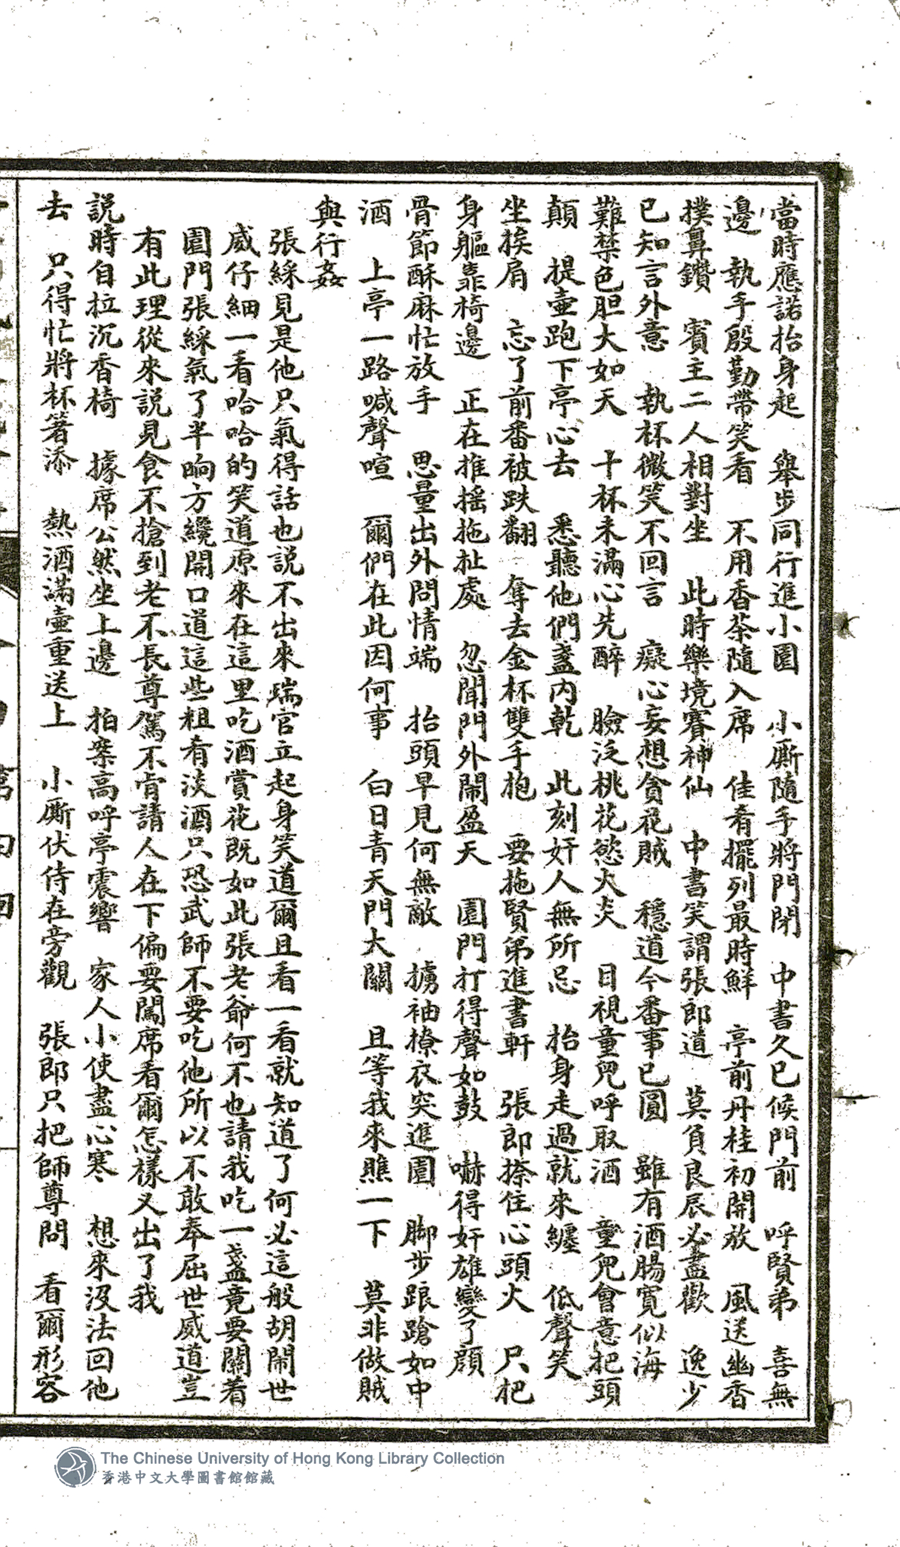 當時應諾抬身起　舉步同行進小園　小厮隨手將門閉　中書久已候門前　呼賢弟　喜無
邊　執手殷勤帶笑看　不用香茶隨入席　佳肴擺列最時鮮　亭前丹桂初開放　風送幽香
撲鼻鑽　賓主二人相對坐　此時樂境賽神仙　中書笑謂張郎道　莫負良辰必盡歡　逸少
已知言外意　執杯微笑不回言　癡心妄想貪花賊　穩道今番事已圓　雖有酒腸寬似海
難禁色胆大如天　十杯未滿心先醉　臉泛桃花慾火炎　目視童兒呼取酒　童兒會意把頭
顛　提壷跑下亭心去　悉聽他們盞內乾　此刻奸人無所忌　抬身走過就來纏　低聲笑
坐挨肩　忘了前番被跌翻　奪去金杯雙手抱　要拖賢弟進書軒　張郎捺住心頭火　只把
身軀靠椅邊　正在推搖拖扯處　忽聞門外鬧盈天　園門打得聲如鼓　嚇得奸雄變了顏
骨節酥麻忙放手　思量出外問情端　抬頭早見何無敵　擄袖撩衣突進園　脚步踉蹌如中
酒　上亭一路喊聲喧　爾們在此因何事　白日青天門大關　且等我來瞧一下　莫非做賊
與行姦
張綵見是他只氣得話也説不出來瑞官立起身笑道爾且看一看就知道了何必這般胡鬧世
威仔細一看哈哈的笑道原來在這里吃酒賞花既如此張老爺何不也請我吃一盞竟要關着
園門張綵氣了半晌方纔開口道這些粗肴淡酒只恐武師不要吃他所以不敢奉屈世威道豈
有此理從來説見食不搶到老不長尊駕不肯請人在下偏要闖席看爾怎樣又出了我
説時自拉沉香椅　據席公然坐上邊　拍案高呼亭震響　家人小使盡心寒　想來沒法回他
去　只得忙將杯著添　熱酒滿壷重送上　小厮伏侍在旁觀　張郎只把師尊問　看爾形容
第四回
The Chinese University of Hong Kong Library Collection
香港中文大學圖書館館藏